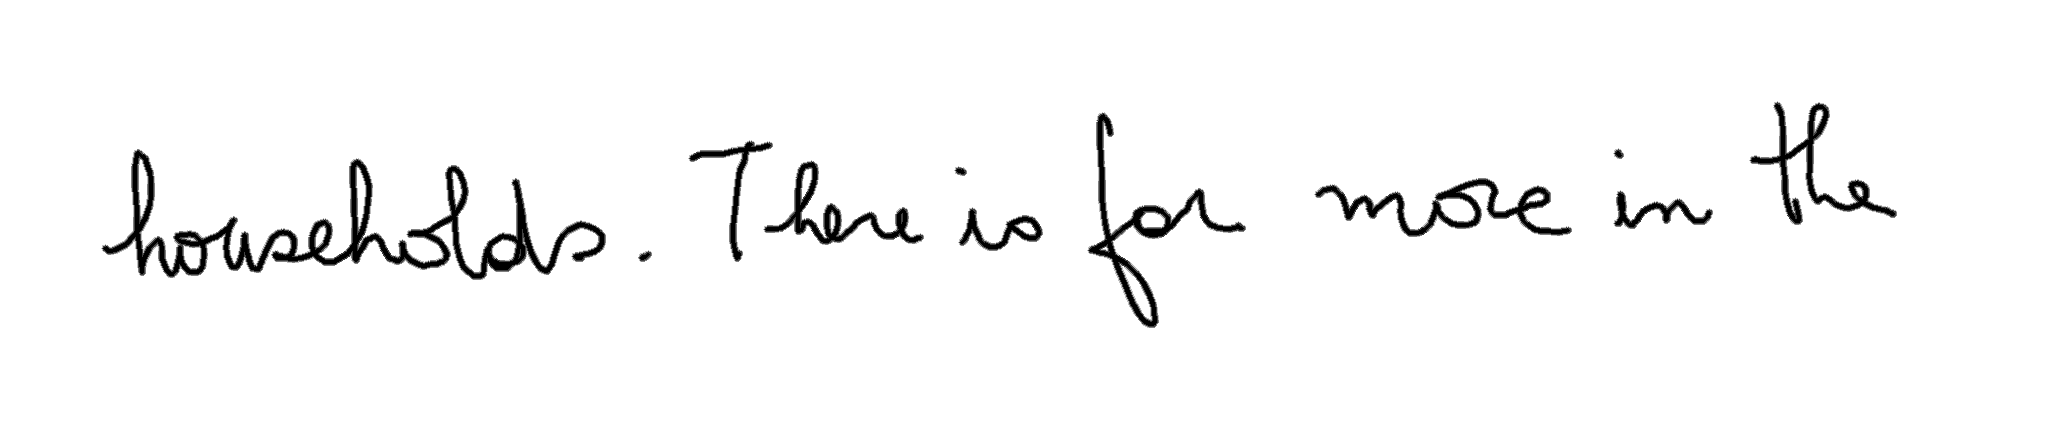 households. There is for more in the